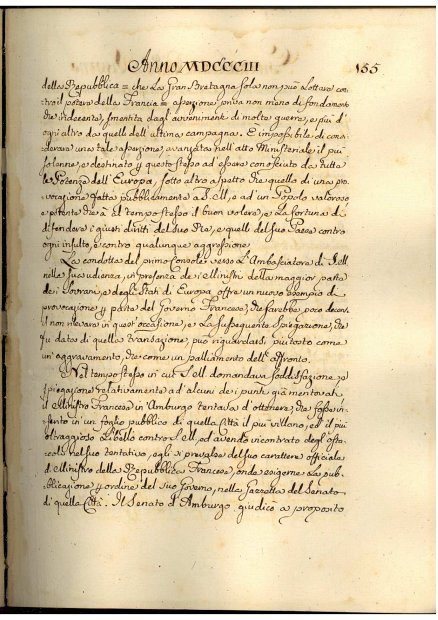 Anno MDCCCIII 155
della Repubblica = che La Gran Bretagna sola non può Lottare con
tro il potere della Francia = asserzione priva non meno di fondamento
che indecente, smentita dagl' avvenimenti di molte guerre, e più d'
ogni altro da quelli dell' ultima campagna. È impossibile di consi
derare una tale asserzione, avanzata nell' atto Ministeriale il più
solenne, e destinato p questo stesso ad essere conosciuto da tutte
le Potenze dell' Europa, sotto altro aspetto che quello di una pro
vocazione fatta pubblicamente a S. M, e ad un Popolo valoroso
e potente che à al tempo stesso il buon volere, e La fortuna di
difendere i giusti diritti del suo Re, e quelli del suo Paese contro
ogni insulto, e contro qualunque aggressione.
La condotta del primo Console verso L'Ambasciatore di S. M
nella sua udienza, in presenza dei Ministri della maggior parte
dei Sovrani, e degli Stati di Europa offre un nuovo esempio di
provocazione p parte del Governo Francese, che sarebbe poco decen
non rilevare in quest' occasione, e La susseguente spiegazione, che
fu data di quella transazione, può riguardarsi piuttosto come
un' aggravamento, che come un palliamento dell' affronto.
Nel tempo stesso in cui S. M. domandava soddisfazione, e
spiegazione relativamente ad alcuni dei punti già mentovati
il Ministro Francese in Amburgo tentava d'ottenere, che fosse in
serito in un foglio pubblico di quella Città il più villano, ed il più
oltraggioso Libello contro S. M, ed avendo incontrato degl' osta
coli nel suo tentativo, egli si prevalse del suo carattere officiale
di Ministro della Repubblica Francese, onde esigerne La pub
blicazione p ordine del suo Governo, nella Gazzetta del Senato
di quella Città. Il Senato d'Amburgo giudicò a proposito